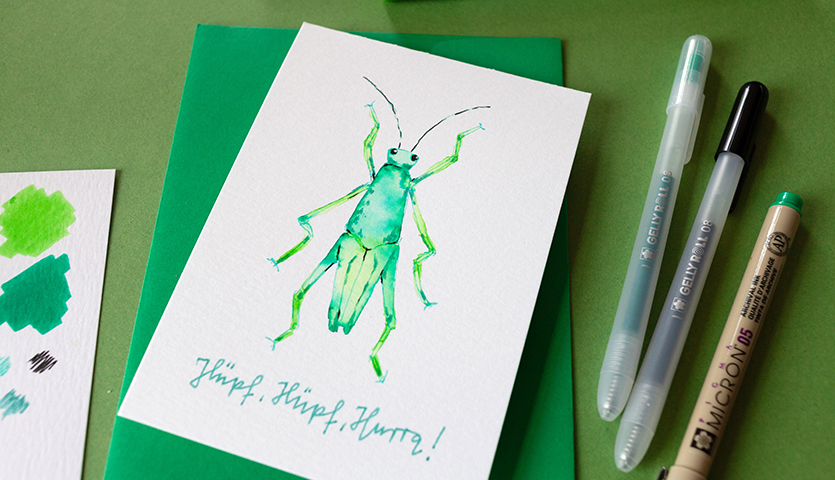 Hüpf, Hüpf, Hurra!
GELLY ROLL 08
GELLY ROLL 08
PIGMA
MICRON 05
ARCHIVAL INK
QUALITÉ D'ARCHIVAGE
AP